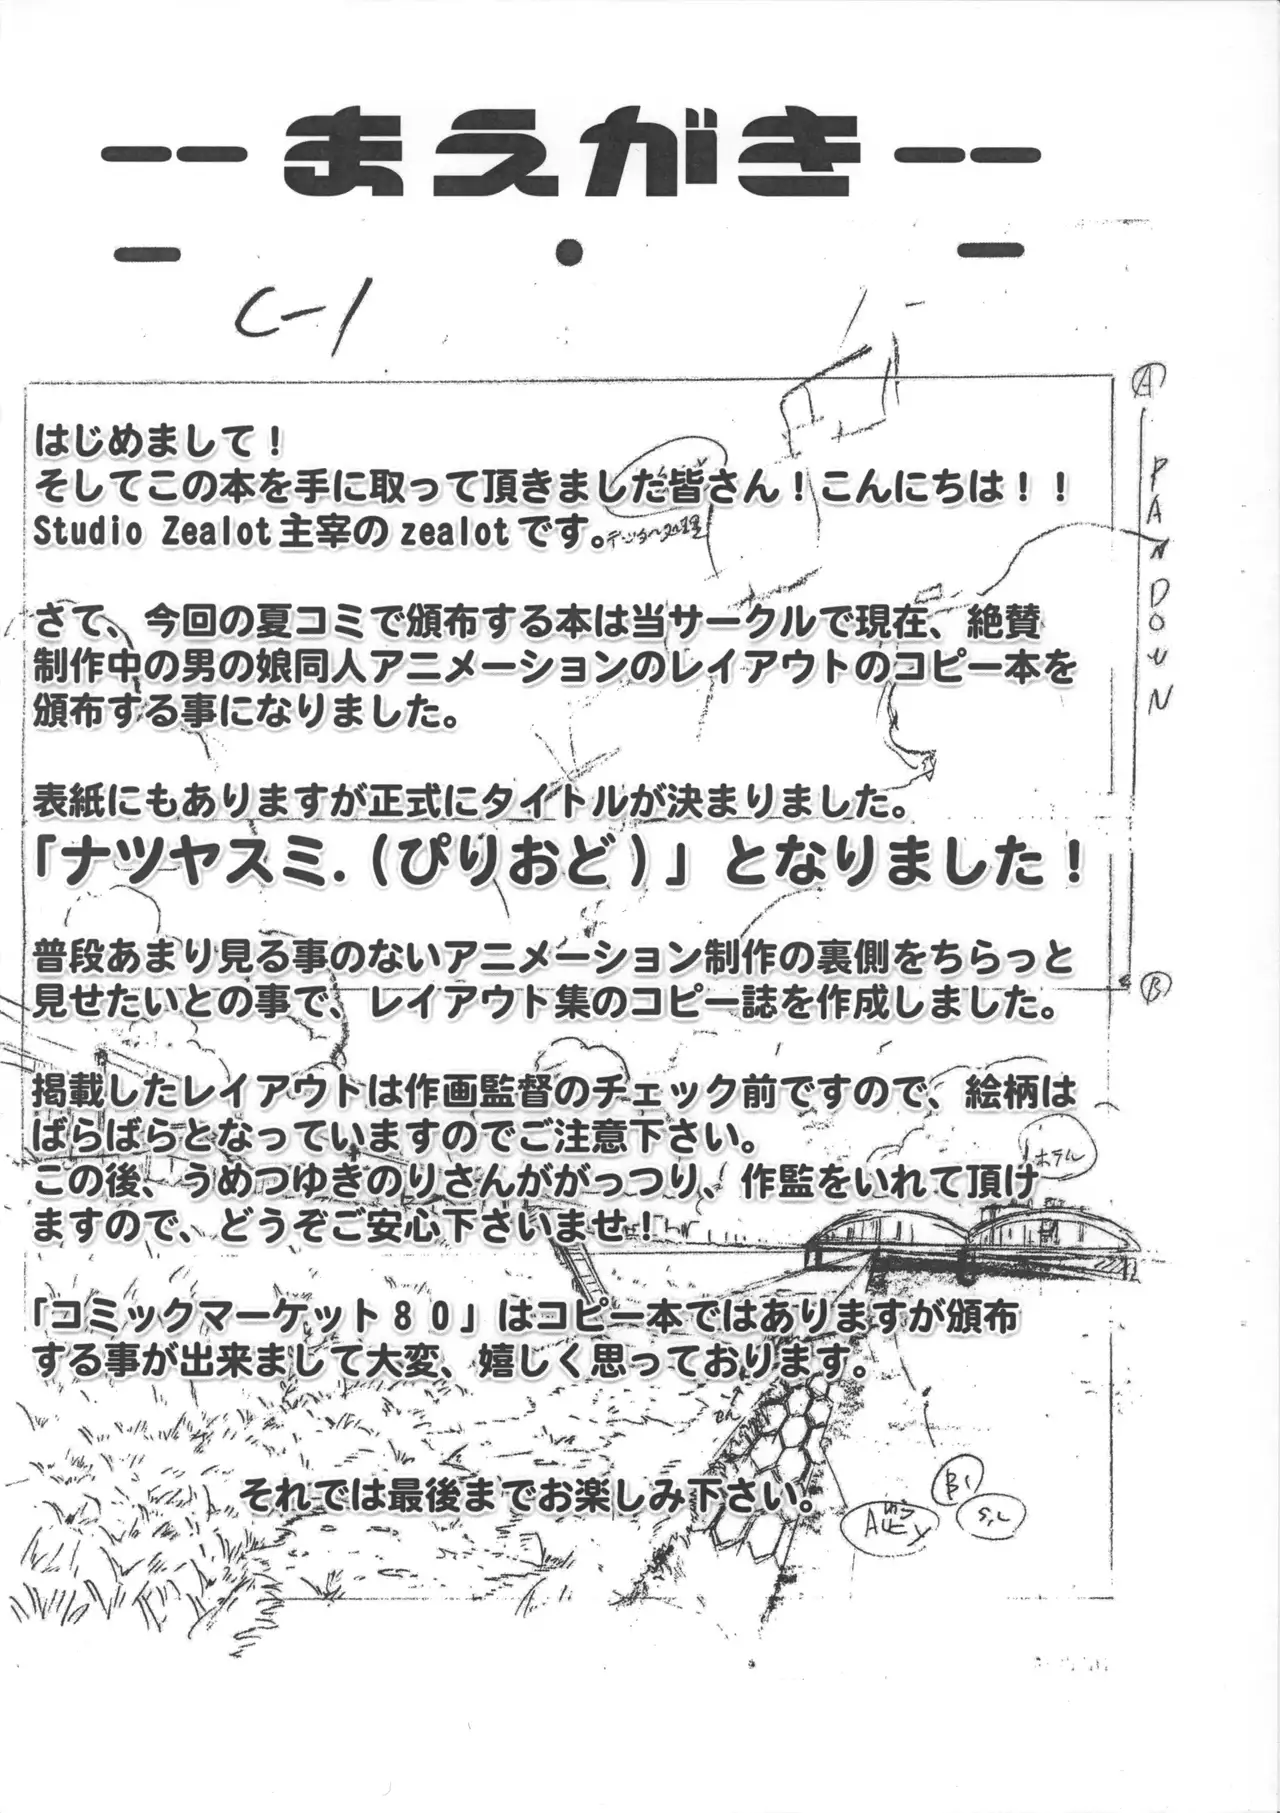 --まえがき--
C-1
A
PAN DOWN
はじめまして！
そしてこの本を手に取って頂きました皆さん！こんにちは！！
Studio Zealot主宰のzealotです。
さて、今回の夏コミで頒布する本は当サークルで現在、絶賛
制作中の男の娘同人アニメーションのレイアウトのコピー本を
頒布する事になりました。
表紙にもありますが正式にタイトルが決まりました。
「ナツヤスミ.（ぴりおど）」となりました！
普段あまり見る事のないアニメーション制作の裏側をちらっと
見せたいとの事で、レイアウト集のコピー誌を作成しました。
B
掲載したレイアウトは作画監督のチェック前ですので、絵柄は
ばらばらとなっていますのでご注意下さい。
ホテル
この後、うめつゆきのりさんががっつり、作監をいれて頂け
ますので、どうぞご安心下さいませ！
「コミックマーケット８０」はコピー本ではありますが頒布
する事が出来まして大変、嬉しく思っております。
それでは最後までお楽しみ下さい。